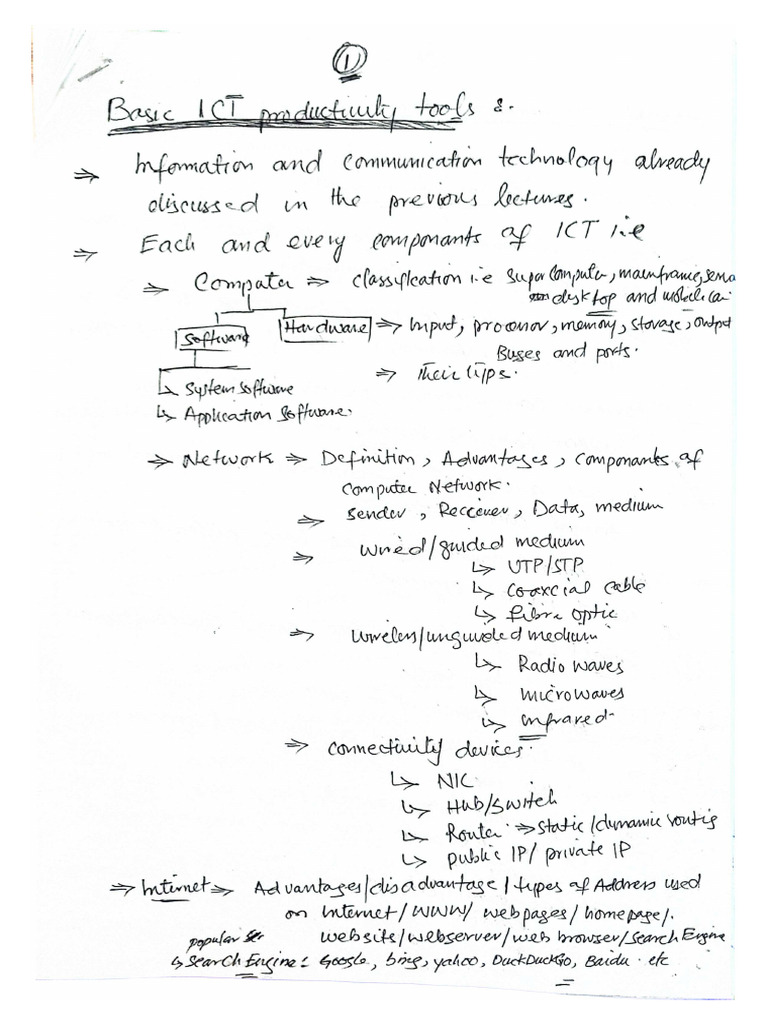 1
Basic ICT productivity tools :.
⇒ Information and communication technology already
discussed in the previous lectures.
⇒ Each and every componants of ICT i.e
⇒ Computer ⇒ classification i.e Super computer, mainframe,
desktop and
Software Hardware ⇒ Input, processor, memory, storage, output
Buses and ports.
⇒ Their
↳ System software
↳ Application Software.
⇒ Network ⇒ Definition, Advantages, componants of
computer Network.
⇒ Sender, Receiver, Data, medium
⇒ wired/guided medium
↳ UTP/STP
↳ coaxcial cable
↳ fibre optic
⇒ wireless/unguided medium
↳ Radio waves
↳ microwaves
↳ infrared
⇒ connectivity devices.
↳ NIC
↳ Hub/switch
↳ Router ⇒ static/dynamic routing
↳ public IP/ private IP
⇒ Internet ⇒ Advantages/disadvantage/types of Address used
on Internet/ WWW/ webpages/ homepage/.
websits/webserver/web browser/search Engine
popular
↳ Search Engine: Google, bing, yahoo, DuckDuckGo, Baidu. etc